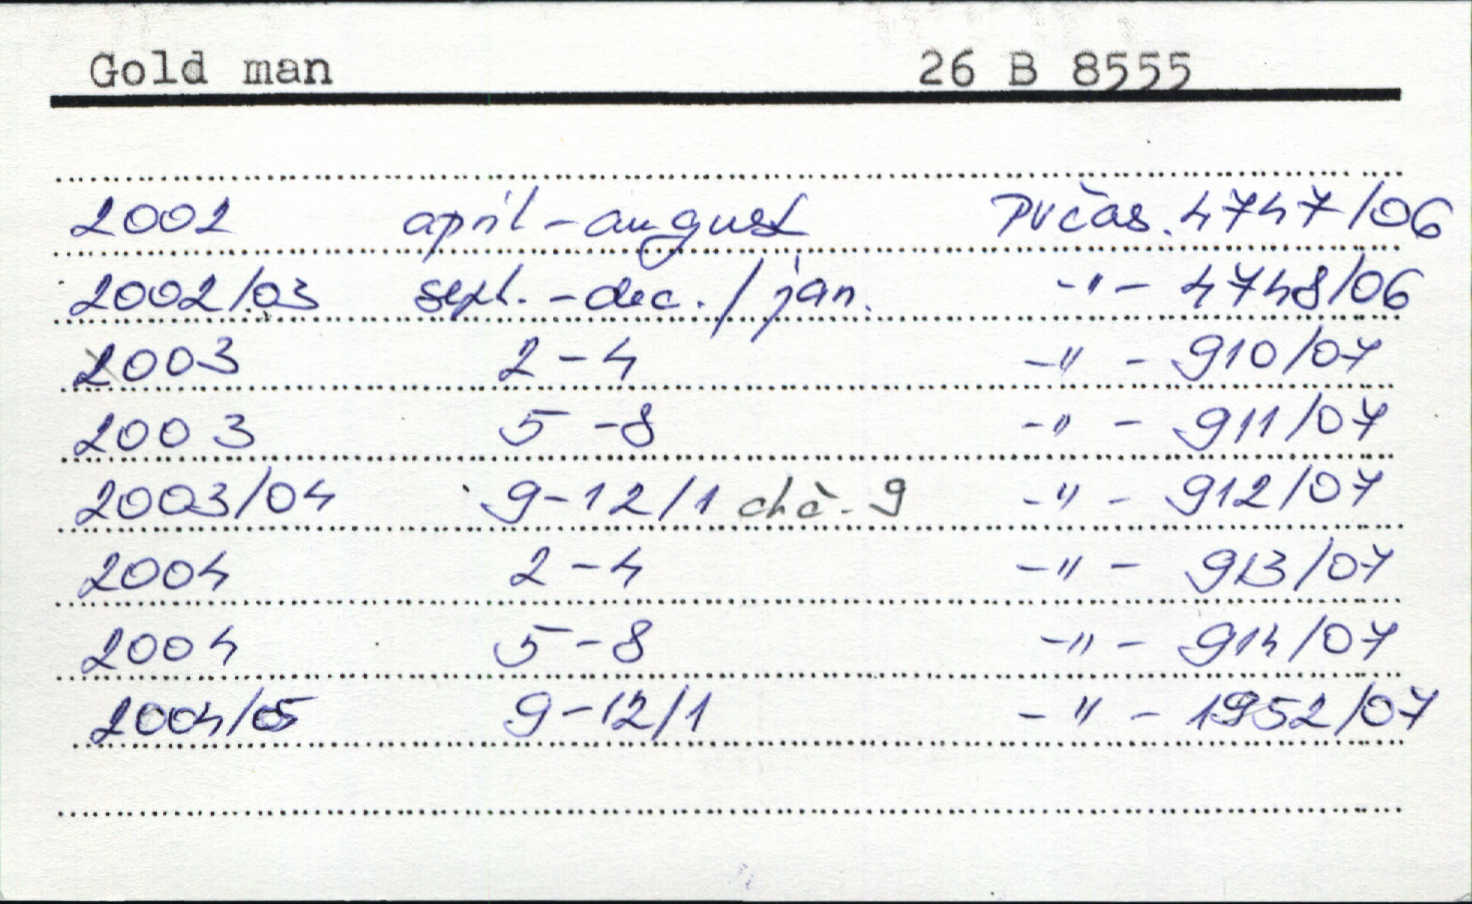 Gold man 26 B 8555
2002 apríl - august PVčas. 4747/06
2002/03 sept. - dec. / jan. -"- 4748/06
2003 2 - 4 -"- 910/07
2003 5 - 8 -"- 911/07
2003/04 9 - 12/1 chč. 9 -"- 912/07
2004 2 - 4 -"- 913/07
2004 5 - 8 -"- 914/07
2004/05 9 - 12/1 -"- 1952/07